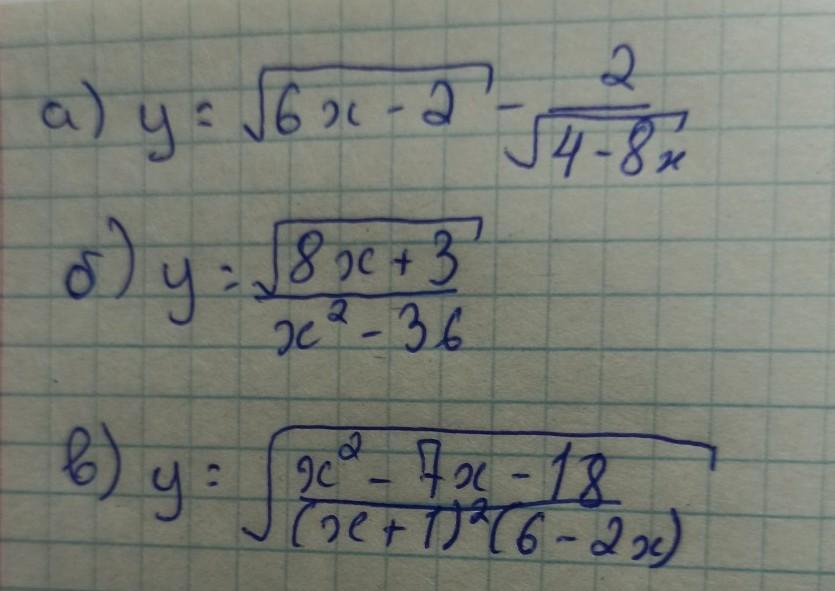 а) y = √(6x - 2) - 2/√(4 - 8x)
б) y = √(8x + 3)/(x² - 36)
в) y = √((x² - 7x - 18)/((x + 1)²(6 - 2x)))